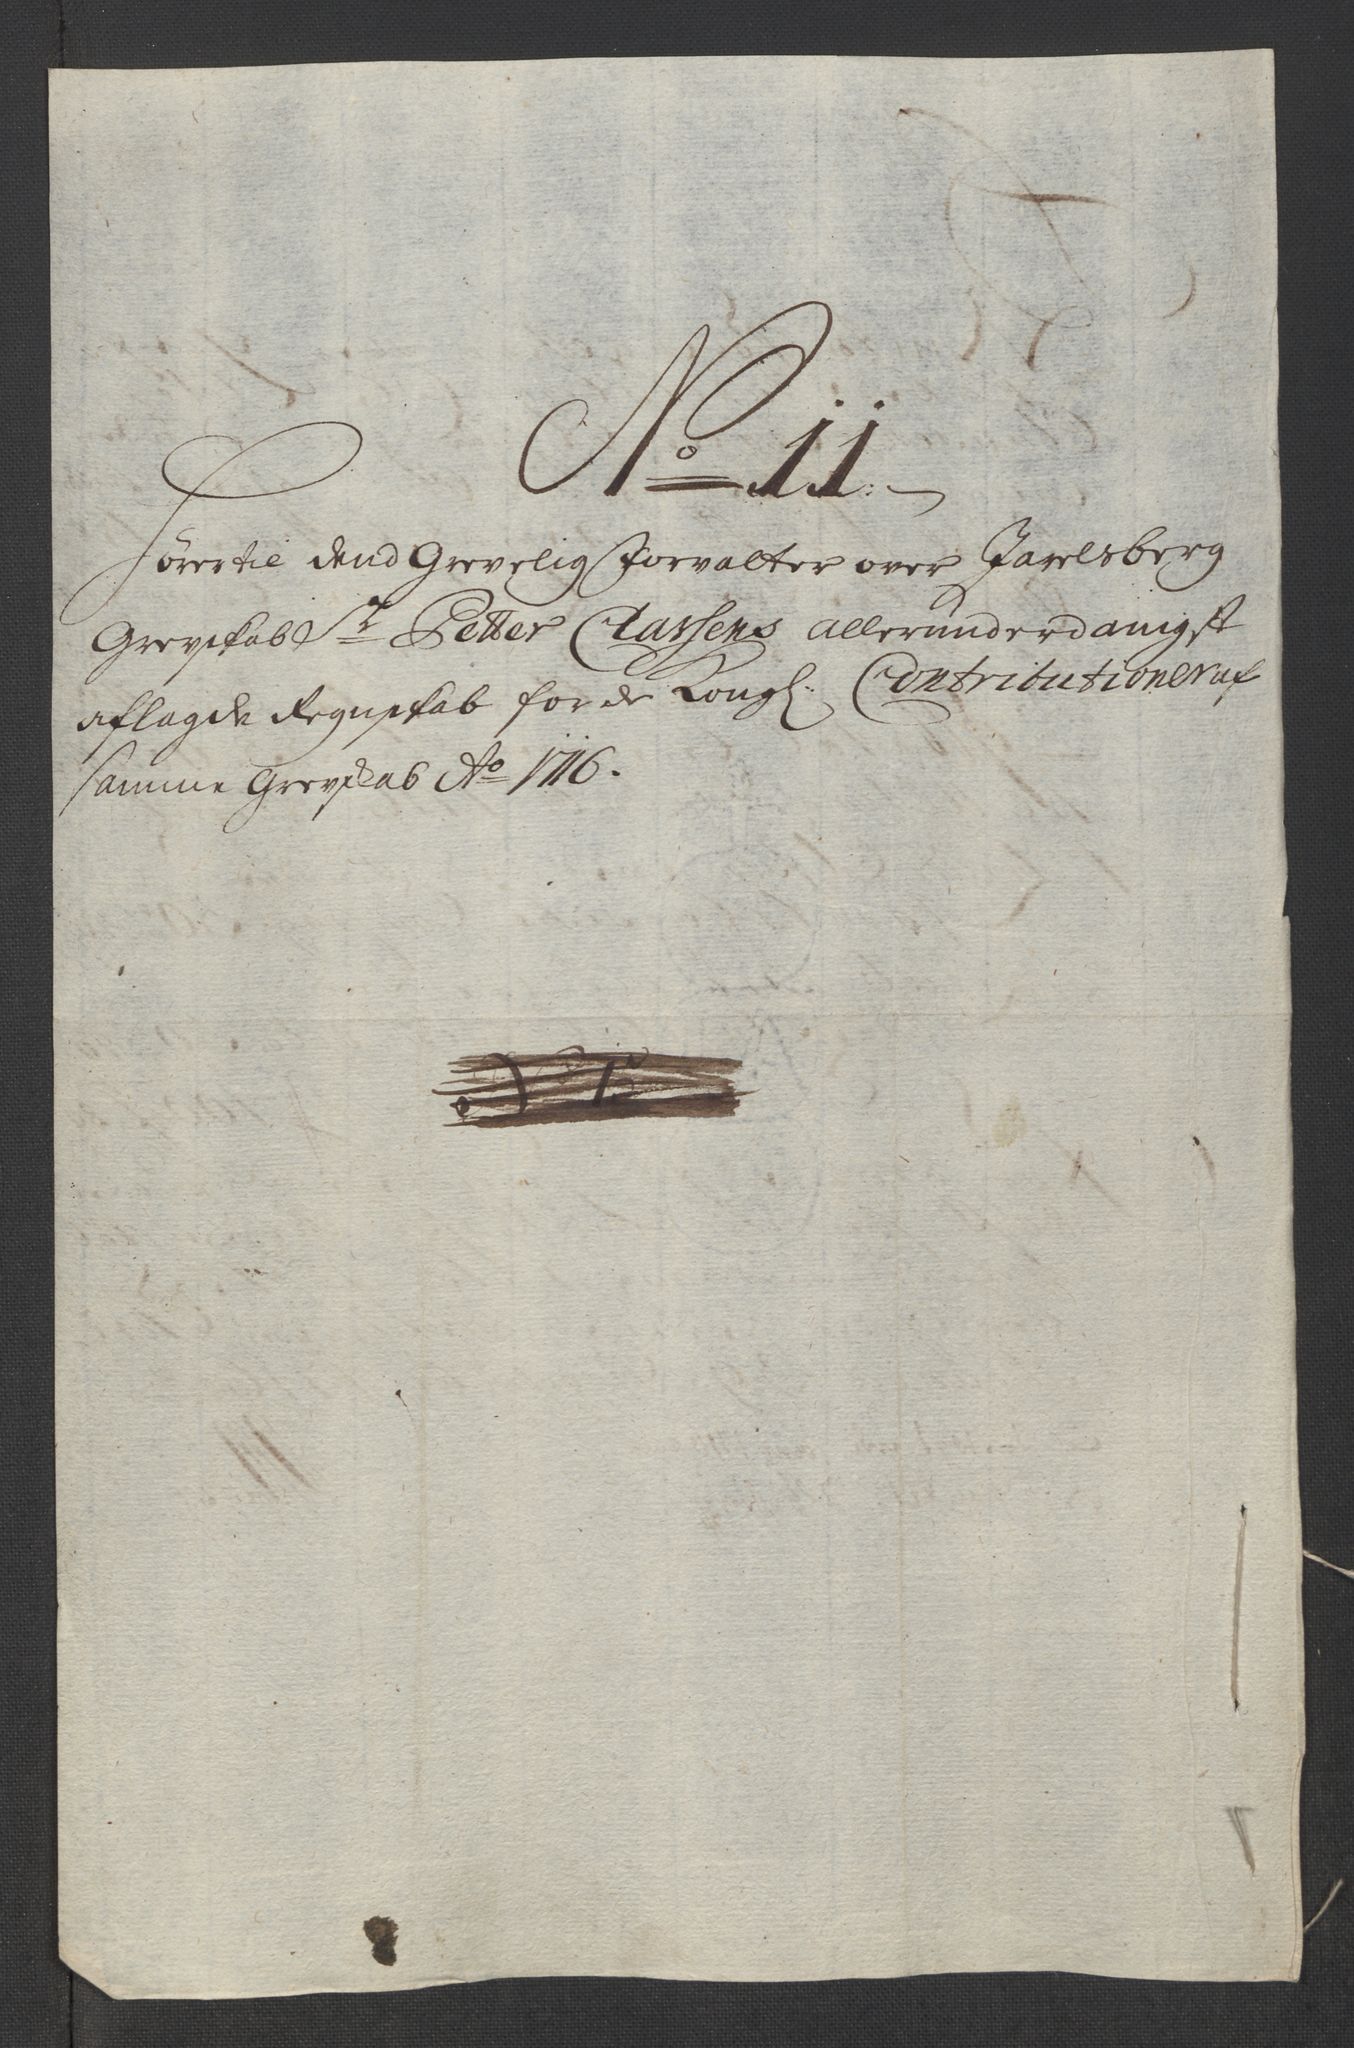 No 11.
Hörer til dend Grevelig Forvalter over Jarelsberg
Grevskabs Sr Petter Clausens allerunderdanigst
aflagde Regnskab for de Kongl: Contributioner af
samme Grevskab Ao 1716.